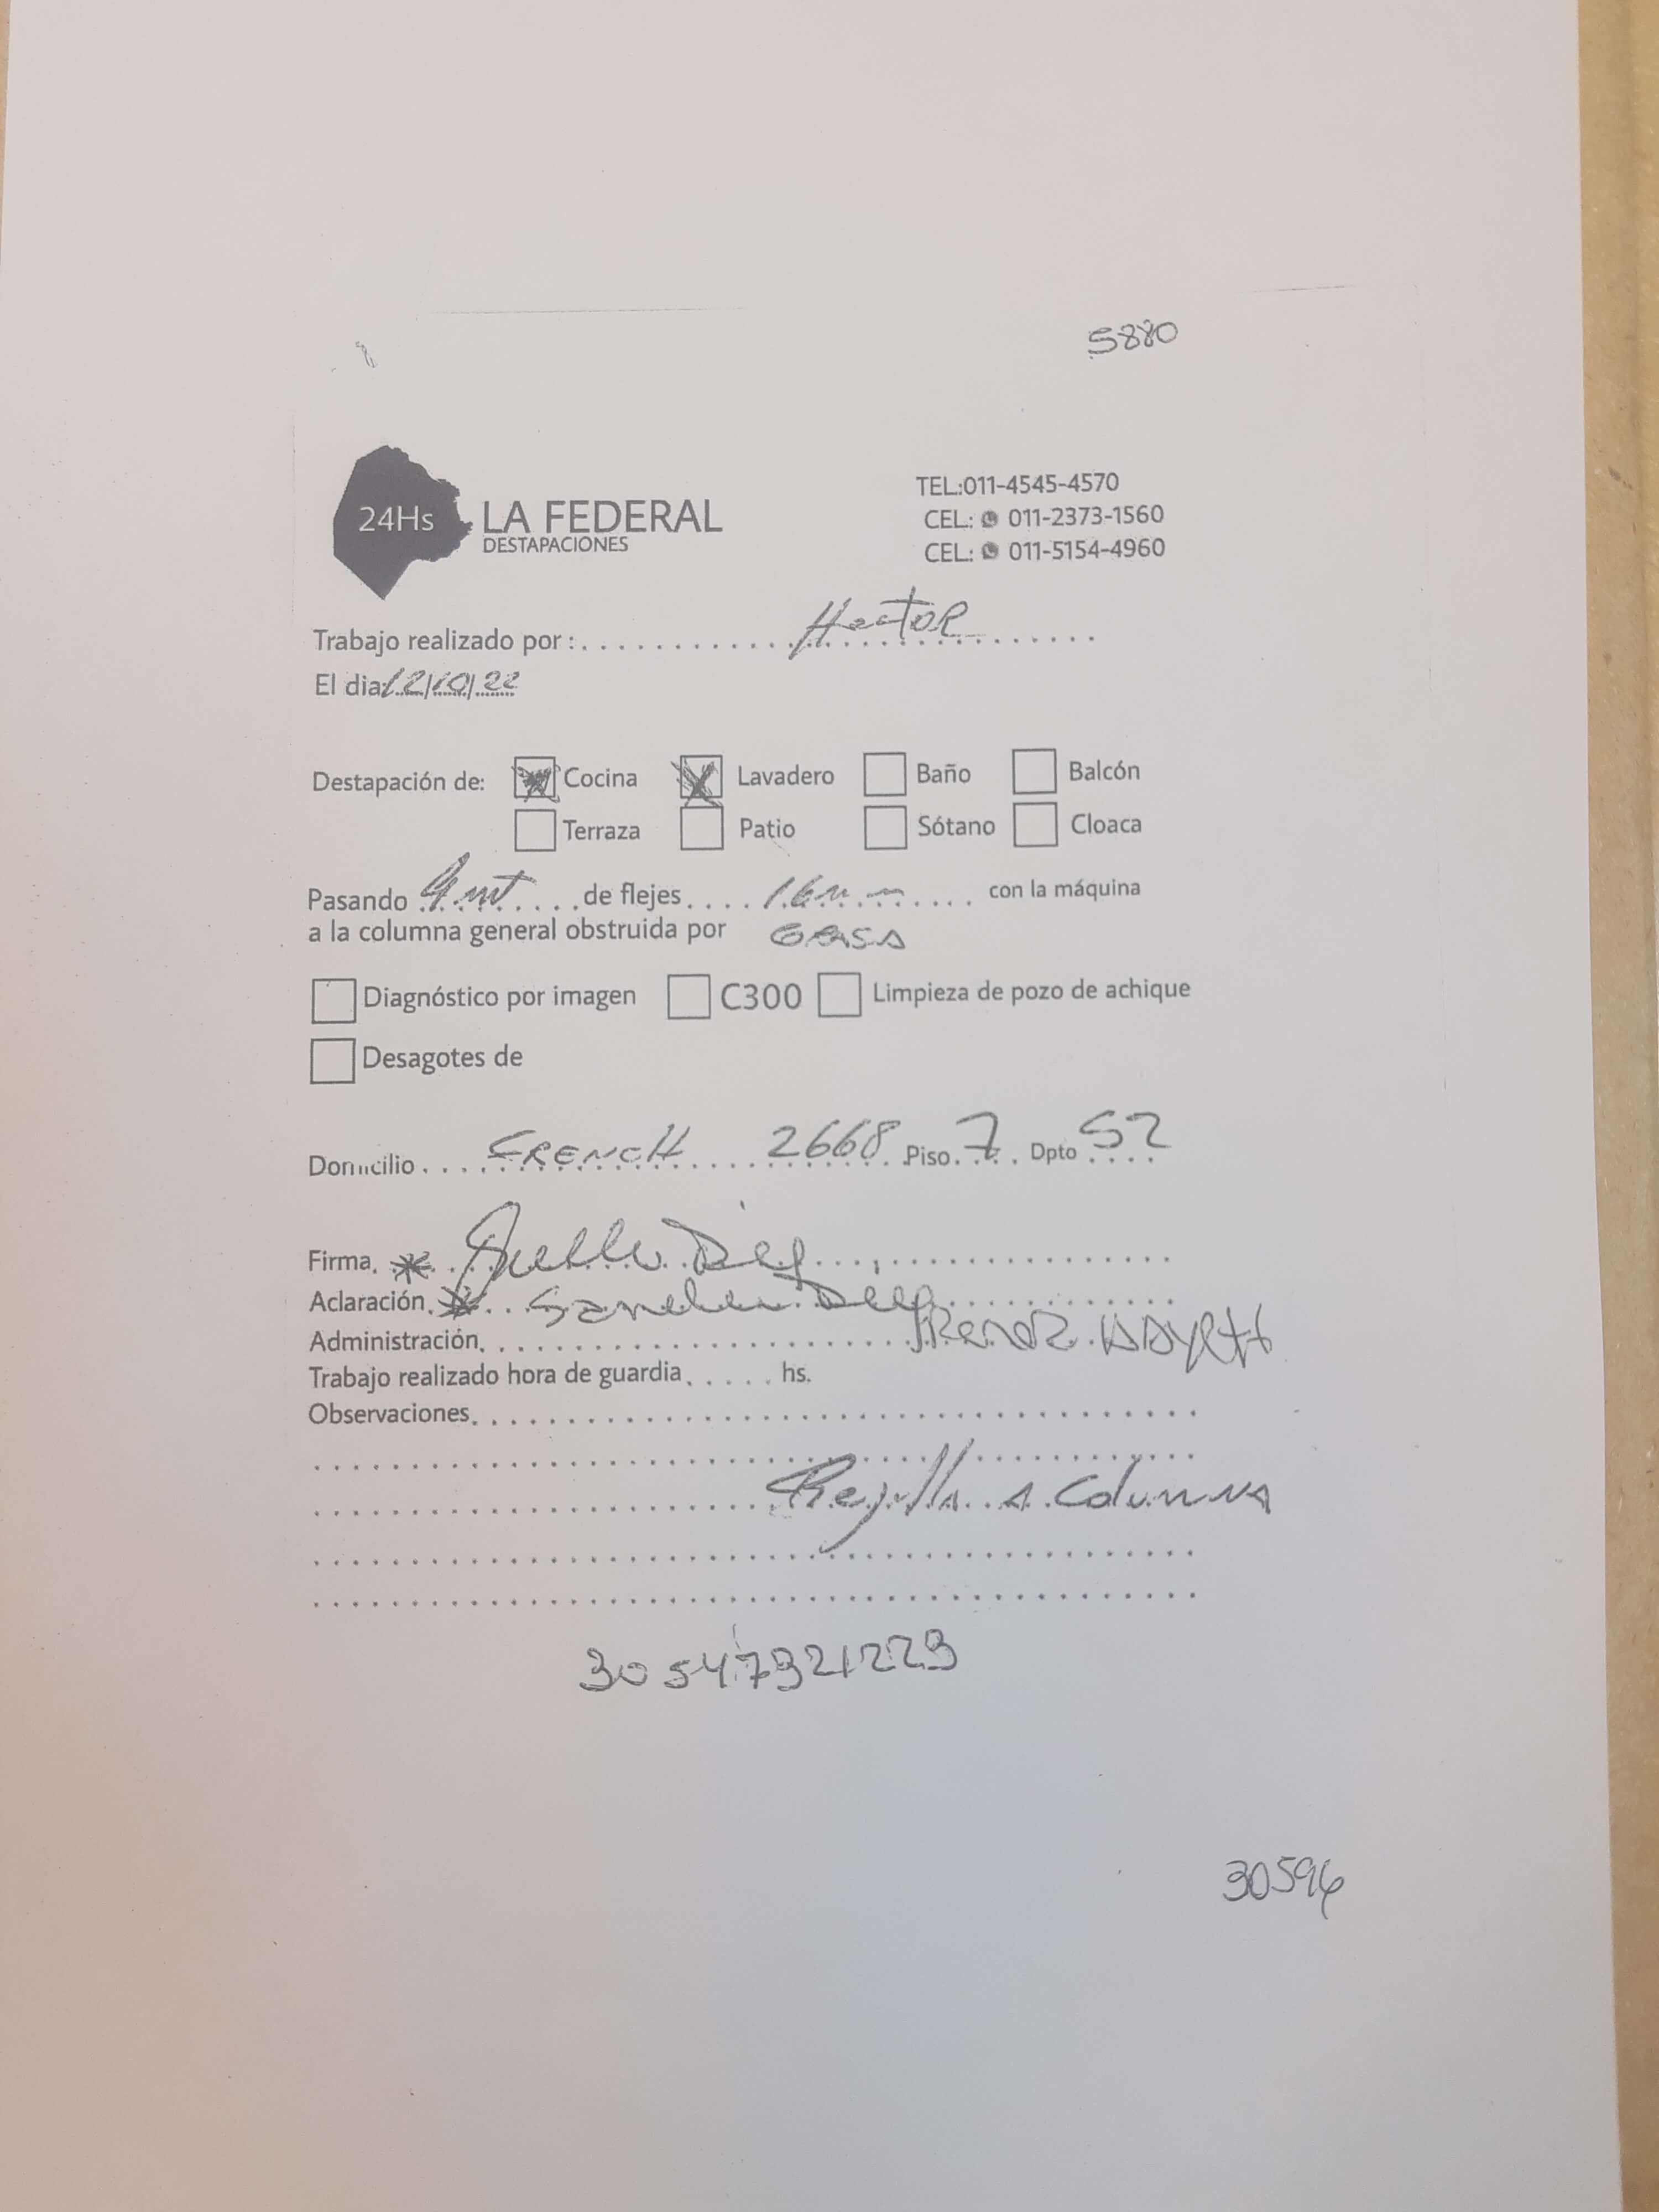 5880
24Hs
LA FEDERAL
DESTAPACIONES
TEL:011-4545-4570
CEL: 011-2373-1560
CEL: 011-5154-4960
Trabajo realizado por : Hector
El dia: 12/10/22
Destapación de: Cocina Lavadero Baño Balcón
Terraza Patio Sótano Cloaca
Pasando 4 mt de flejes 16 m m con la máquina
a la columna general obstruida por GRASA
Diagnóstico por imagen C300 Limpieza de pozo de achique
Desagotes de
Domicilio FRENCH 2668 Piso 7 Dpto 52
Firma
Aclaración
Administración
Trabajo realizado hora de guardia hs.
Observaciones
Rejilla a Columna
30547921223
30594